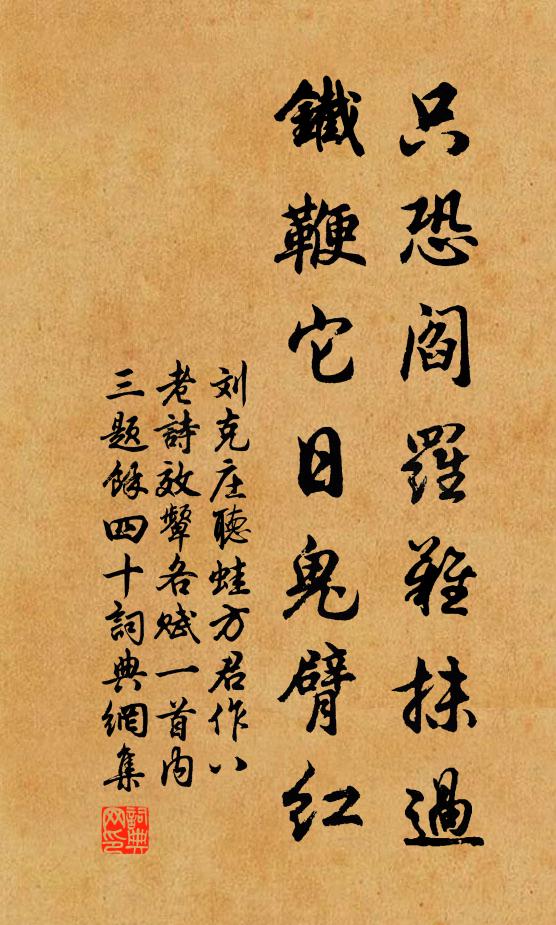 只恐閻羅難抹過
鐵鞭它日鬼臂紅
刘克庄聽蛙方君作八
老詩效顰各賦一首内
三题餘四十詞典網集
詞典网印